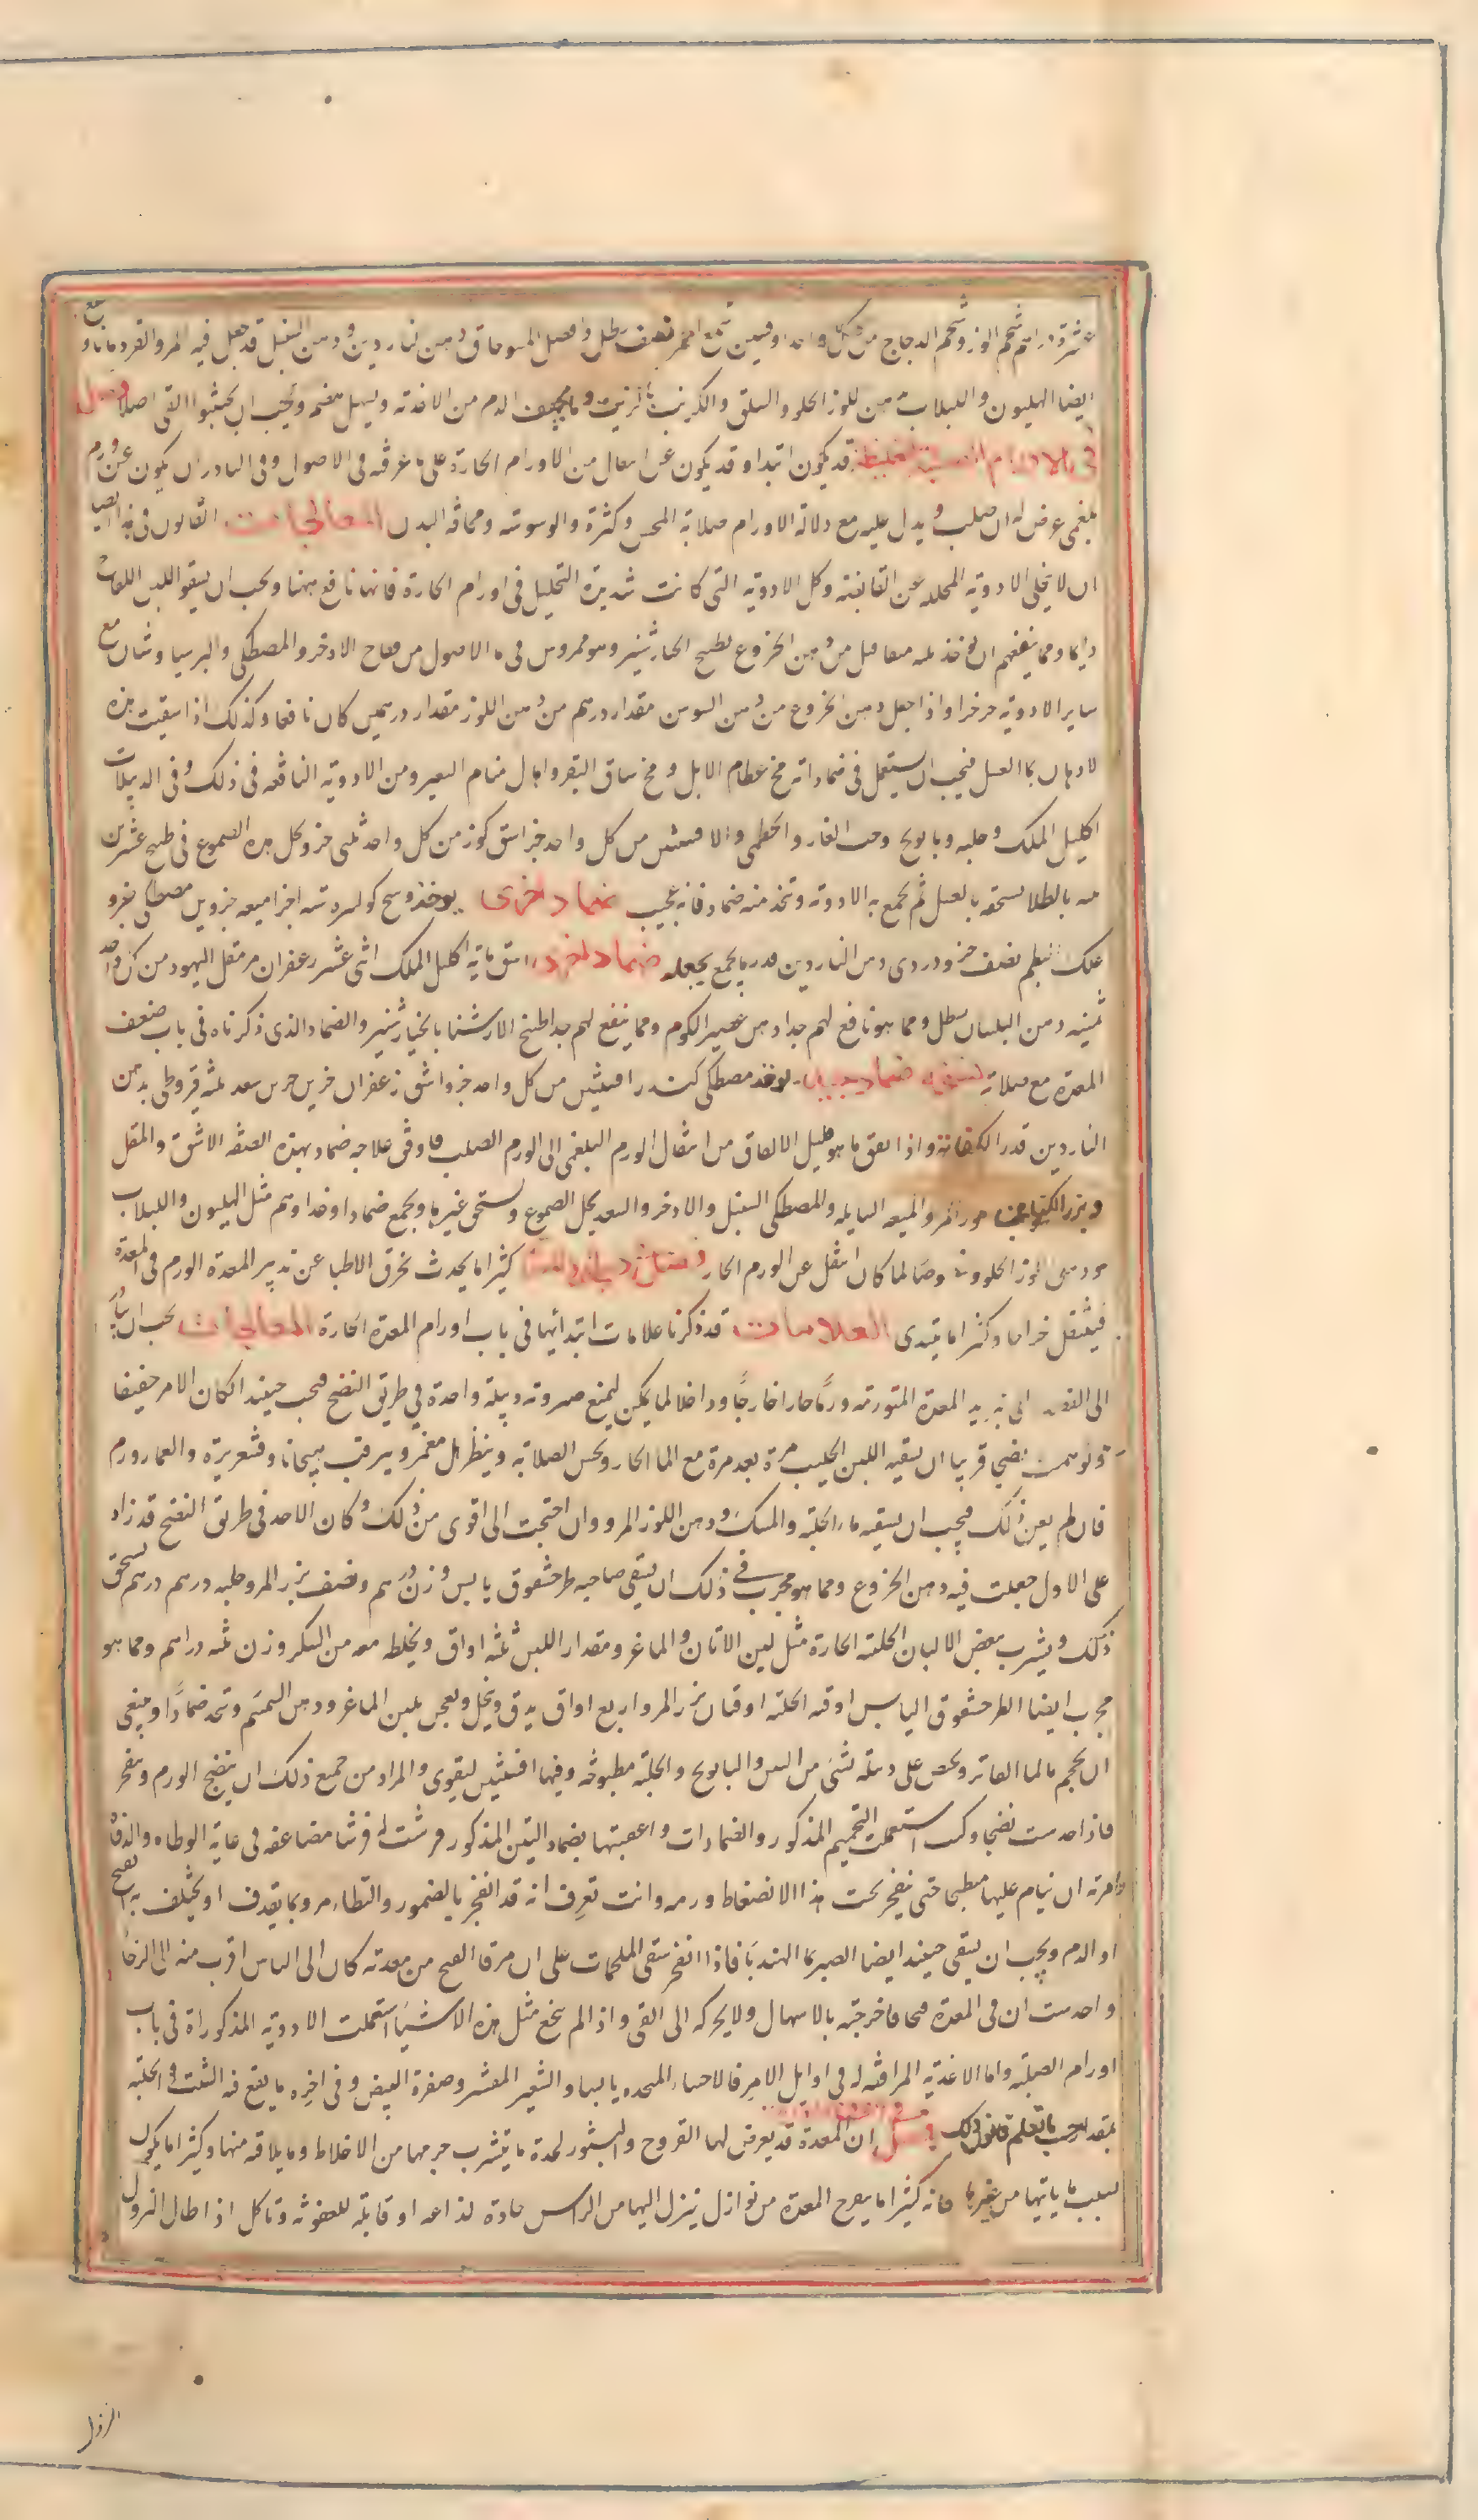 عشرة دراهم شحم الوز وشحم الدجاج من كل واحد اوقيتين شمع احمر نصف رطل وافضل دهن ناردين ودهن السنبل قد جعل فيه المر والقردمانا و
ايضا الهليون واللبلاب بدهن اللوز الحلو والسلق والكرنب بالزيت وما يخفف الدم من الاغذية ويسهل هضمه ويجب ان يجتنبوا القئ اصلا فصل
في الاورام الصلبة الغليظة قد يكون ابتداء وقد يكون عن انتقال من الاورام الحارة على ما عرفته في الاصول وفي النادر ان يكون عن ورم
بلغمي عرض له ان صلب ويدل عليه مع دلالة الاورام صلابة المجس وكثرة الوسوسة ونحافة البدن المعالجات القانون في هذا ايضا
ان لا يخلى الادوية المحللة عن القابضة وكل الادوية التي كانت شديدة التحليل في اورام الحارة فانها نافع ههنا ويجب ان يسقوا اللبن اللقاح
دايما ومما ينفعهم ان يؤخذ ثلثة مثاقيل من دهن الخروع بطبيخ الخيارشنبر وهو ممروس في ماء الاصول من فقاح الاذخر والمصطكي والبرسياوشان مع
ساير الادوية جزءا جزءا واذا جعل دهن الخروع من دهن السوسن مقدار درهم من دهن اللوز مقدار درهمين كان نافعا وكذلك اذا سقيت هذه
لادهان بماء العسل فيجب ان يستعمل في ضماداته مخ عظام الابل ومخ ساق البقر واهال سنام البعير ومن الادوية النافعة في ذلك وفي الدبيلات
اكليل الملك وحلبه وبابونج وحب الغار والخطمي والافسنتين من كل واحد جزء اشق كوز من كل واحد ثلثي جزء يحل هذه الصموغ في طبيخ عشرين
بالطلا يسحقه بالعسل ثم يجمع به الادوية ويتخذ منه ضماد فانه عجيب ضماد اخرى يوخذ وسخ كوارة ستة اجزا ميعه جزوين مصطكي جزو
علك البطم نصف جزو ودردي دهن الناردين قدر ما يجمع بجعله ضماد اخرى اشق ماية اكليل الملك اثنى عشر زعفران مر مقل اليهود من كل واحد
ثمنية دهن البلسان رطل ومما هو نافع لهم جدا دهن عصير الكرم ومما ينفع لهم جدا طبيخ الارشنا بالخيارشنبر والضماد الذي ذكرناه في باب ضعف
المعدة مع صلابة ضماد جيد يوخذ مصطكي كندر افسنتين من كل واحد جزو اشق زعفران جزين جزين سعد ثلثه قيروطي بدهن
الناردين قدر الكفاية واذا اتفق ما هو قليل الاتفاق من انتقال الورم البلغمي الى الورم الصلب فاوفق علاجه ضماد بهذه الصفة الاشق والمقل
وبزر الكتان والميعه السايله والمصطكي السنبل والاذخر والسعد يحل الصموغ ويسحق غيرها ويجمع ضمادا وغذاوهم مثل الهليون واللبلاب
ودهن اللوز الحلو وخصوصا لما كان انتقل عن الورم الحار فصل في دبيلة المعدة كثيرا ما يحدث بخرق الاطبا عن تدبير المعدة الورم في المعدة
فينتقل خراجا وكثيرا ما يبتدى العلامات قد ذكرنا علامات ابتدائها في باب اورام المعدة الحارة المعالجات يجب ان يبادر
الى الفصد المعدة المتورمة ورما حارا خارجا وداخلا لما يمكن ليمنع صيرورته دبيلة واحدة في طريق النضج فيجب حينيذ ان كان الامر خفيفا
وتوسمت نضجا قريبا ان يسقيه اللبن الحليب مرة بعد مرة مع الما الحار ويجس الصلابة وينظر هل مغمز ويرقب هيجانا وقشعريرة وانغمار ورم
فان لم يغن ذلك فيجب ان يسقيه ماء الحلبة والحسك ودهن اللوز المر وان احتجت الى اقوى من ذلك وكان الاحد في طريق النضج قد زاد
على الاول جعلت فيه دهن الخروع ومما هو مجرب في ذلك ان يسقي صاحبه طرخشقوق يابس وزن درهم ونصف بزر المر وحلبه درهم درهم يسحق
ذلك ويشرب ببعض الالبان الحلبة الحارة مثل لبن الاتان والماعز ومقدار اللبن ثلثه اواق ويخلط معه من السكر وزن ثلثه دراهم ومما هو
مجرب ايضا الطرخشقوق اليابس اوقية الحلبة اوقيتان بزر المر واربع اواق يدق وينخل ويعجن بلبن الماعز ودهن السمسم ويتخذ ضمادا وينبغي
ان يحجم بالماء الفاتر ويحص على دبيلة بشئ من التين والبابونج والحلبة مطبوخة وفيها افسنتين ليقوي والمراد من جميع ذلك ان ينضج الورم وينفجر
فاذا حدست نضجا وكس استعملت التحميم المذكور والضمادات واعقبتها بضماد التين المذكور فرشت له فرشا مضاعفه في غاية الوطاه والدفاء
وامرته ان ينام عليها منبطحا حتى ينفجر تحت هذا الانضغاط ورمه وانت تعرف انه قد انفجر بالضمور والتطامر وبما يقذف او يختلف به القيح
او الدم ويجب ان يسقي حينيذ ايضا الصبر بماء الهندبا فاذا انفجر سقي الملحمات على ان من قاء القيح من معدته كان الى الياس اقرب منه الى الرجا
واحدست ان في المعدة قيحا فاخرجته بالاسهال ولا يحركه الى القئ واذا لم ينجع مثل هذه الاشيا استعملت الادوية المذكوراة في باب
اورام الصلبة واما الاغذية المرافقه له في اوايل الامر فالاحساء المتخذه بالنشا والشعير المقشر وصفرة البيض وفي اخره ما يقع فيه الشبت والحلبه
بقدر بحسب ما تعلم قانون ذلك فصل ان المعدة قد يعرض لها القروح والبثور لحدة ما يتشرب جرمها من الاخلاط وما يلاقيه منها وكثيرا ما يكون
بسبب ما ياتيها من غيرها فانه كثيرا ما يقرح المعدة من نوازل تنزل اليها من الراس حادة لذاعة او قابلة للعفونه وتاكل اذا طال النزول
النزول